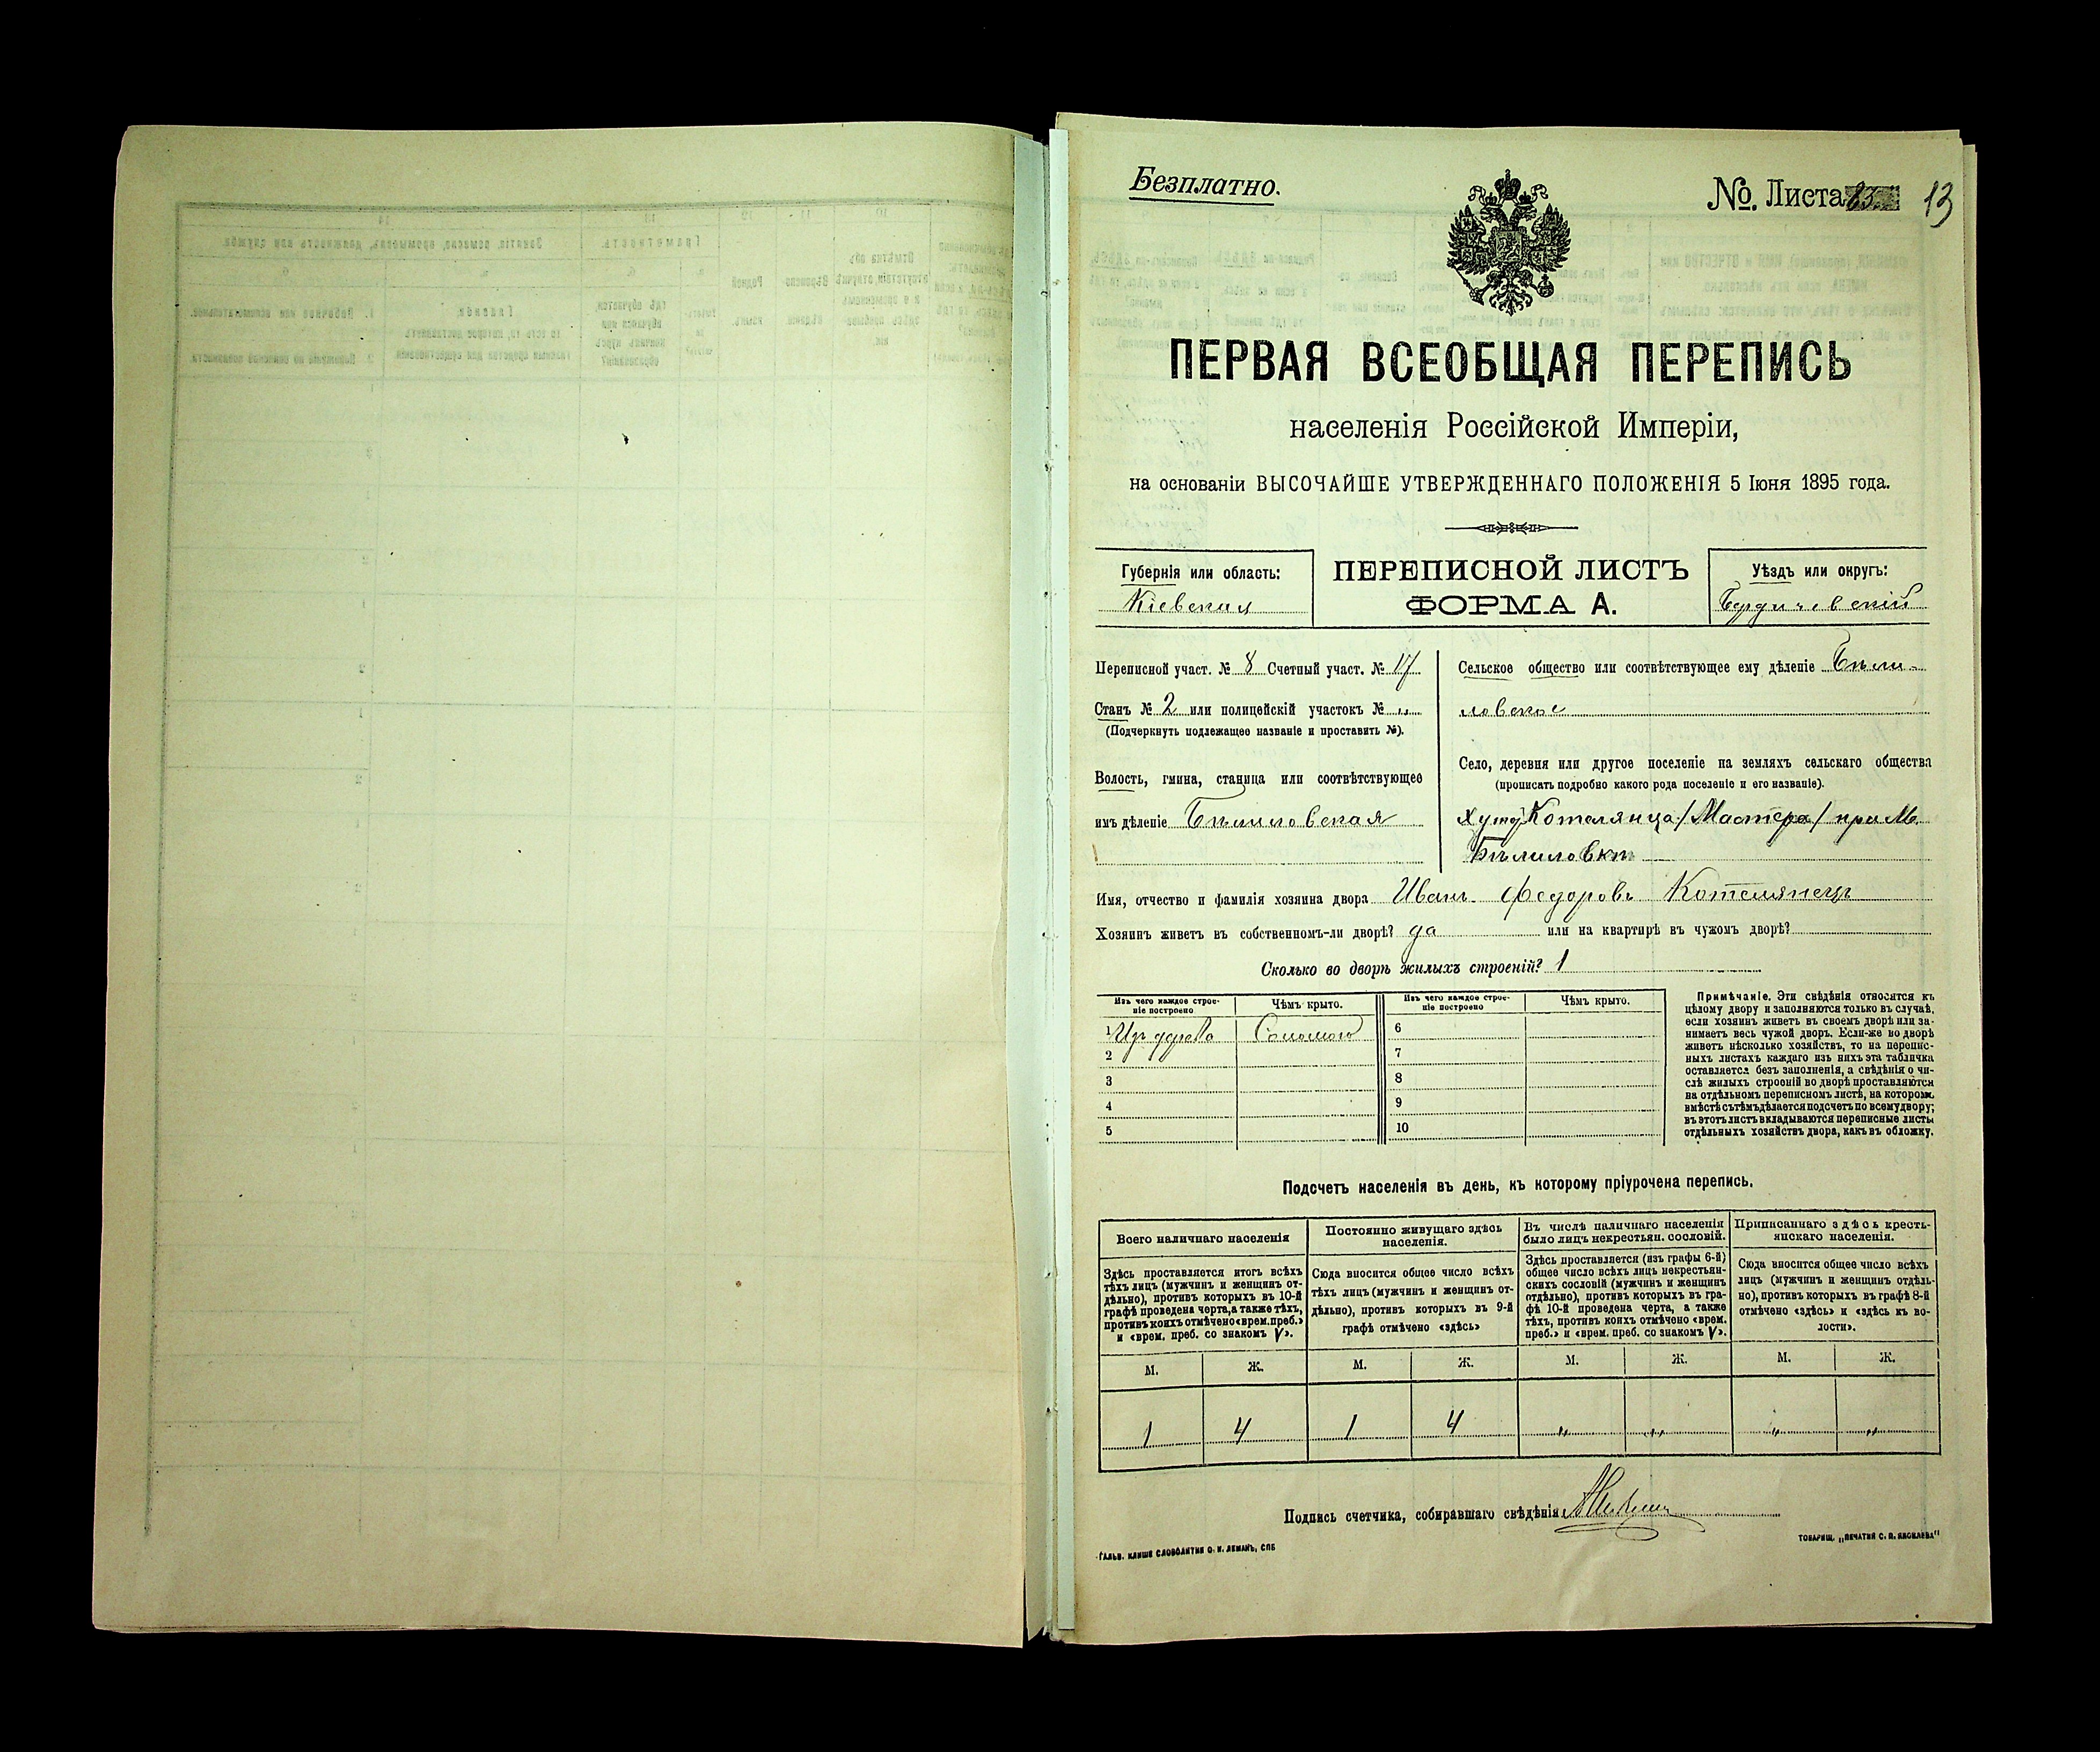 Безплатно.
№. Листа 83. 13
ПЕРВАЯ ВСЕОБЩАЯ ПЕРЕПИСЬ
населенія Россійской Имперіи,
на основаніи ВЫСОЧАЙШЕ УТВЕРЖДЕННАГО ПОЛОЖЕНІЯ 5 Іюня 1895 года.
Губернія или область:
Кіевская
ПЕРЕПИСНОЙ ЛИСТЪ
ФОРМА А.
Уѣздъ или округъ:
Бердичевскій
Переписной участ. № 8 Счетный участ. № 17
Станъ № 2 или полицейскій участокъ № „
(Подчеркнуть подлежащее названіе и проставить №).
Волость, гмина, станица или соотвѣтствующее
имъ дѣленіе Бѣлиловская
Сельское общество или соотвѣтствующее ему дѣленіе Бѣли-
ловское
Село, деревня или другое поселеніе на земляхъ сельскаго общества
(прописать подробно какого рода поселеніе и его названіе).
Хутор Котелянца /Мастера/ при М.
Бѣлиловкѣ
Имя, отчество и фамилія хозяина двора Иванъ Федоровъ Котелянецъ
Хозяинъ живетъ въ собственномъ-ли дворѣ? да или на квартирѣ въ чужомъ дворѣ?
Сколько во дворѣ жилыхъ строеній? 1
Изъ чего каждое строе-
ніе построено
Чѣмъ крыто.
1 Изъ дерева Соломою
2
3
4
5
Изъ чего каждое строе-
ніе построено
Чѣмъ крыто.
6
7
8
9
10
Примѣчаніе. Эти свѣдѣнія относятся къ
цѣлому двору и заполняются только въ случаѣ,
если хозяинъ живетъ въ своемъ дворѣ или за-
нимаетъ весь чужой дворъ. Если-же во дворѣ
живетъ нѣсколько хозяйствъ, то на перепис-
ныхъ листахъ каждаго изъ нихъ эта табличка
оставляется безъ заполненія, а свѣдѣнія о чи-
слѣ жилыхъ строеній во дворѣ проставляются
на отдѣльномъ переписномъ листѣ, на которомъ
вмѣстѣ съ тѣмъ дѣлается подсчетъ по всему двору;
въ этотъ листъ вкладываются переписные листы
отдѣльныхъ хозяйствъ двора, какъ въ обложку.
Подсчетъ населенія въ день, къ которому пріурочена перепись.
Всего наличнаго населенія
Здѣсь проставляется итогъ всѣхъ
тѣхъ лицъ (мужчинъ и женщинъ от-
дѣльно), противъ которыхъ въ 10-й
графѣ проведена черта, а также тѣхъ,
противъ коихъ отмѣчено «врем. преб.»
и «врем. преб. со знакомъ V».
Постоянно живущаго здѣсь
населенія.
Сюда вносится общее число всѣхъ
тѣхъ лицъ (мужчинъ и женщинъ от-
дѣльно), противъ которыхъ въ 9-й
графѣ отмѣчено «здѣсь»
Въ числѣ наличнаго населенія
было лицъ некрестьян. сословій.
Здѣсь проставляется (изъ графы 6-й)
общее число всѣхъ лицъ некрестьян-
скихъ сословій (мужчинъ и женщинъ
отдѣльно), противъ которыхъ въ гра-
фѣ 10-й проведена черта, а также
тѣхъ, противъ коихъ отмѣчено «врем.
преб.» и «врем. преб. со знакомъ V».
Приписаннаго здѣсь кресть-
янскаго населенія.
Сюда вносится общее число всѣхъ
лицъ (мужчинъ и женщинъ отдѣль-
но), противъ которыхъ въ графѣ 8-й
отмѣчено «здѣсь» и «здѣсь къ во-
лости».
М. Ж. М. Ж. М. Ж. М. Ж.
1 4 1 4 „ „ „ „
Подпись счетчика, собиравшаго свѣдѣнія
ГАЛЬВ. КЛИШЕ СЛОВОЛИТНИ О. И. ЛЕМАНЪ, СПБ
ТОВАРИЩ. „ПЕЧАТНЯ С. П. ЯКОВЛЕВА"